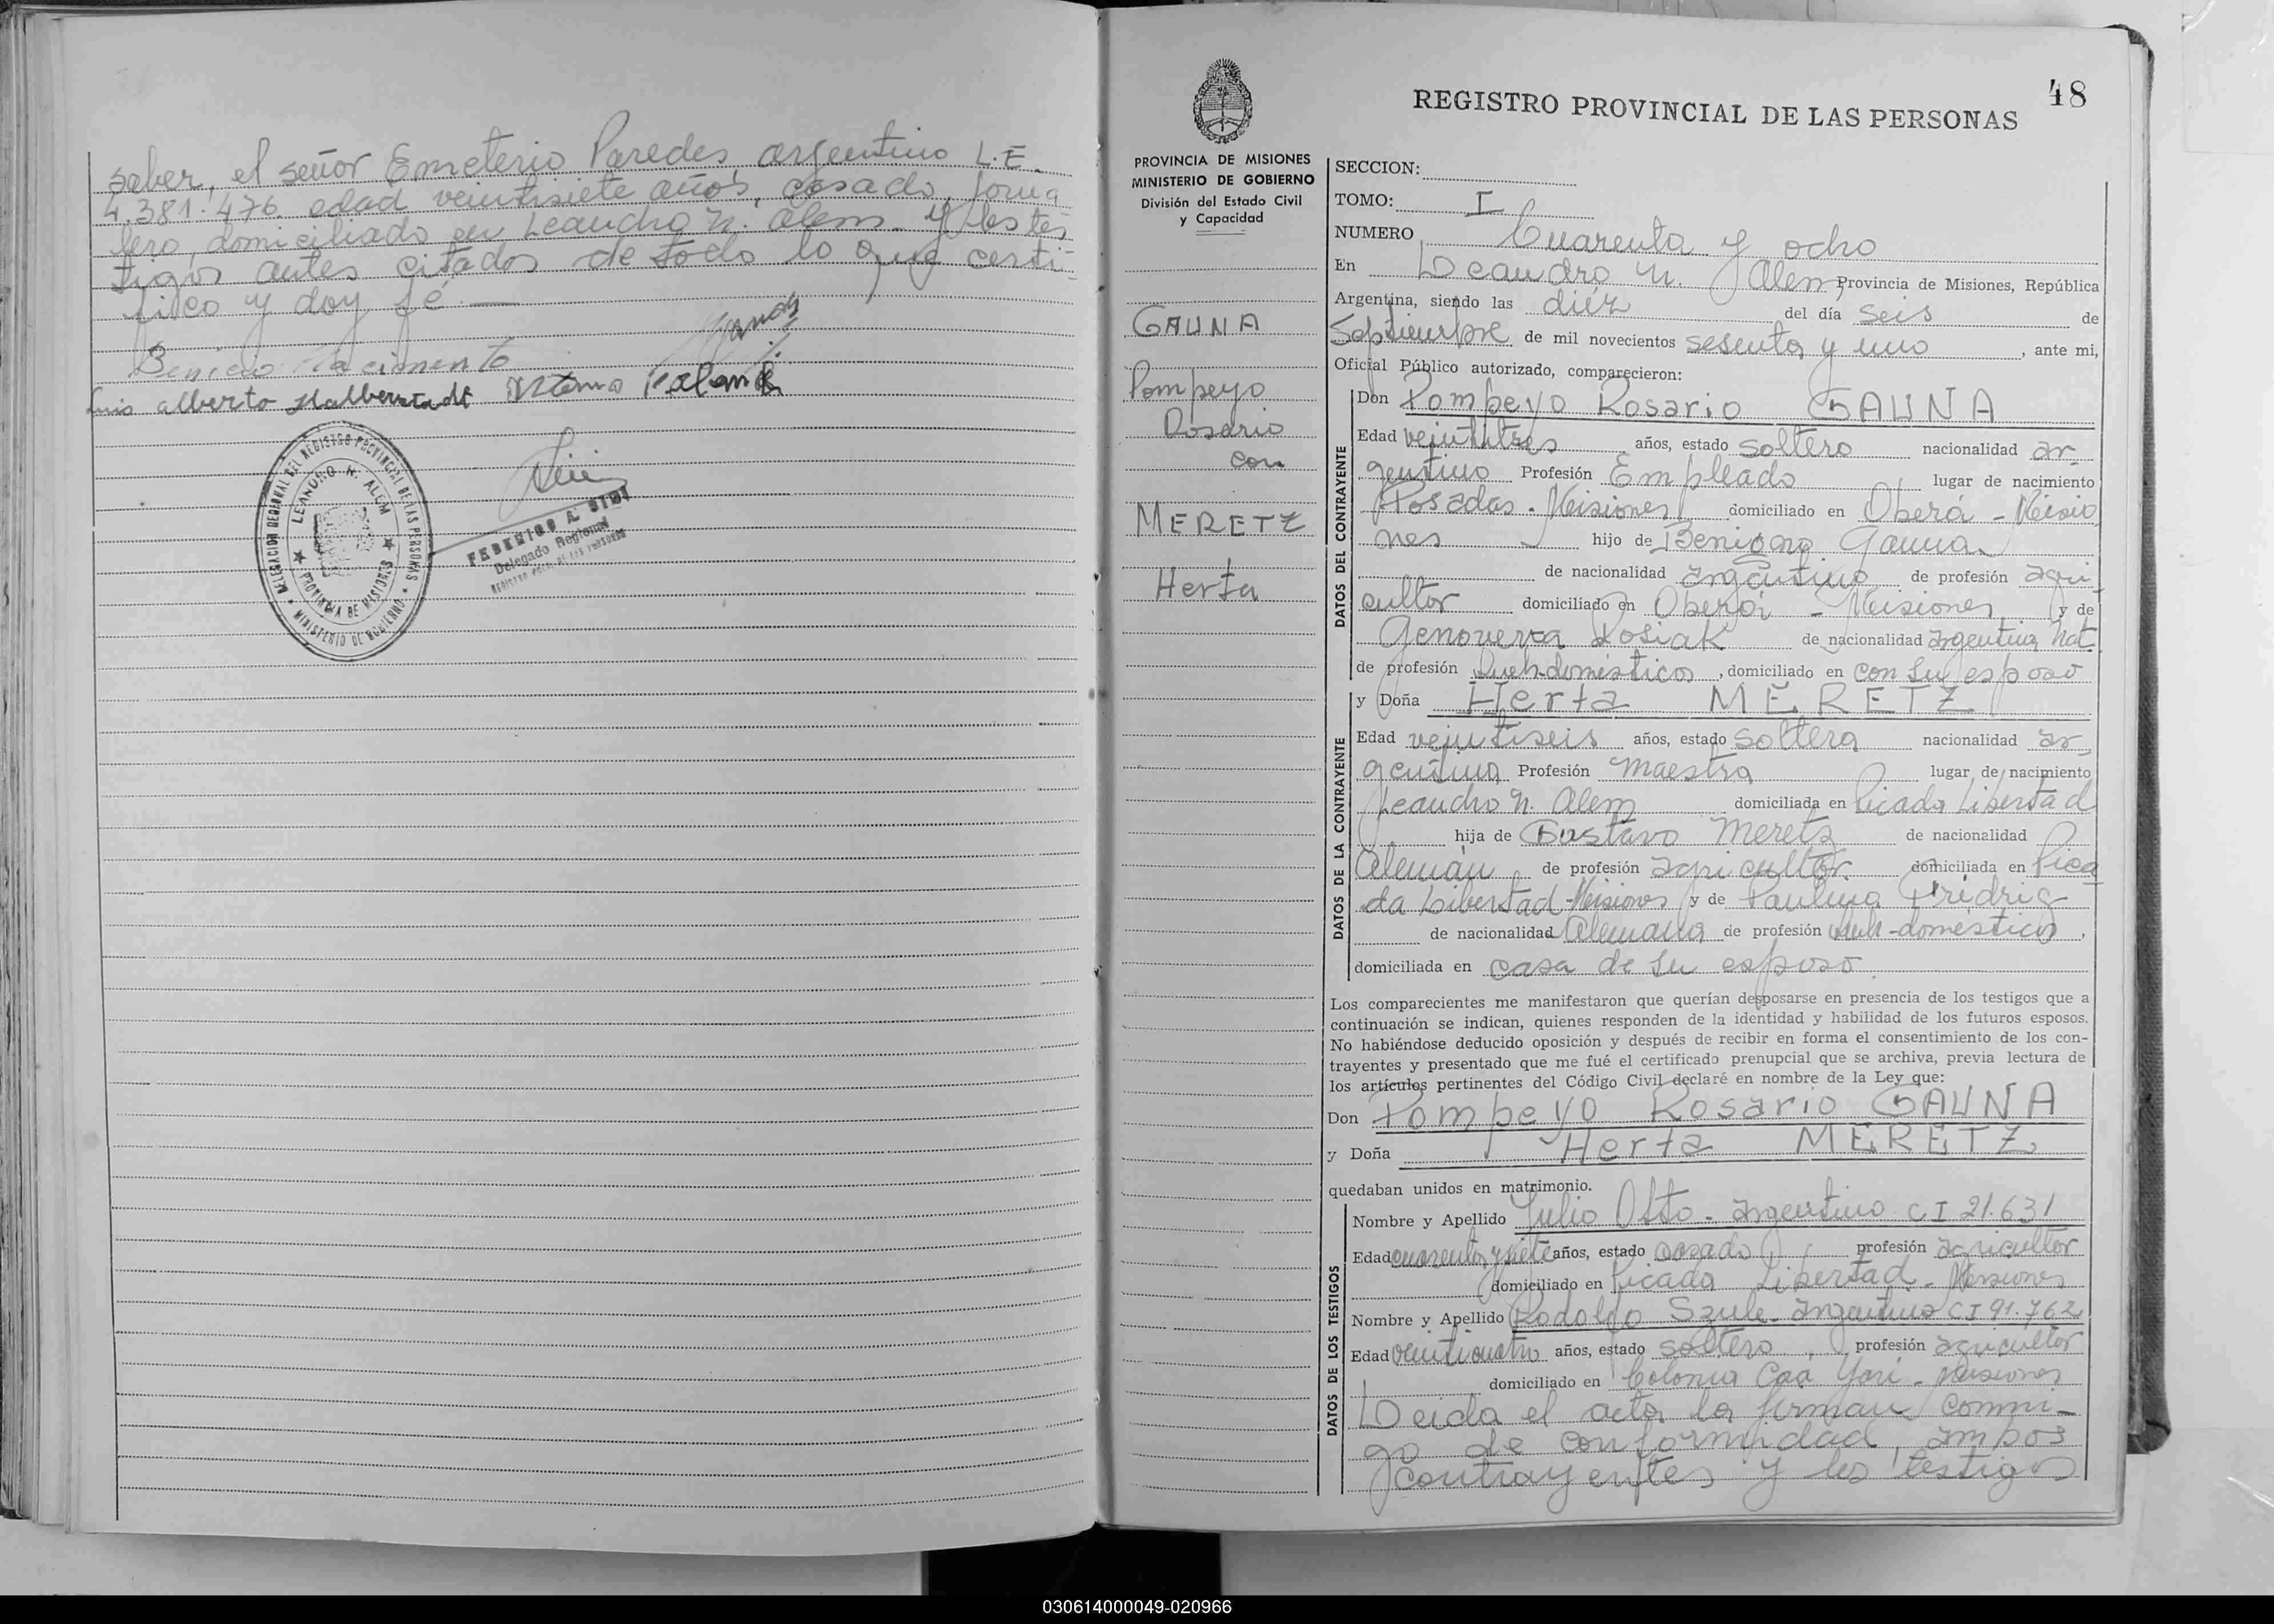 saber, el señor Emeterio Paredes argentino L.E.
4.381.476 edad veintisiete años, casado, jorna
lero, domiciliado en Leandro N. Alem. y los tes
tigos antes citados de todo lo que certi-
fico y doy fé.—
Benicio Nacimento
Luis alberto Halberstadt
DELEGACION REGIONAL DEL REGISTRO PROVINCIAL DE LAS PERSONAS
LEANDRO N. ALEM
PROVINCIA DE MISIONES
MINISTERIO DE GOBIERNO
FEDERICO A.
Delegado Regional
48
REGISTRO PROVINCIAL DE LAS PERSONAS
PROVINCIA DE MISIONES
MINISTERIO DE GOBIERNO
División del Estado Civil
y Capacidad
GAUNA
Pompeyo
Rosario
con
MERETZ
Herta
SECCION:
TOMO: I
NUMERO Cuarenta y ocho
En Leandro N. Alem, Provincia de Misiones, República
Argentina, siendo las diéz del día seis de
Septiembre de mil novecientos sesenta y uno, ante mi,
Oficial Público autorizado, comparecieron:
DATOS DEL CONTRAYENTE
Don Pompeyo Rosario GAUNA
Edad veintitres años, estado soltero nacionalidad ar-
gentino Profesión Empleado lugar de nacimiento
Posadas - Misiones domiciliado en Oberá - Misio
nes hijo de Benigno Gauna
de nacionalidad argentino de profesión agri-
cultor domiciliado en Oberá - Misiones y de
Genoveva Rosiak de nacionalidad argentina nat.
de profesión Queh. domésticos, domiciliado en con su esposo
DATOS DE LA CONTRAYENTE
y Doña Herta MERETZ
Edad veintiseis años, estado soltera nacionalidad ar-
gentina Profesión maestra lugar de nacimiento
Leandro N. Alem domiciliada en Picada Libertad
hija de Gustavo Meretz de nacionalidad
Alemán de profesión agricultor domiciliada en Pica
da Libertad - Misiones y de Paulina Fridrig
de nacionalidad Alemana de profesión Queh-domésticos,
domiciliada en casa de su esposo
Los comparecientes me manifestaron que querían desposarse en presencia de los testigos que a
continuación se indican, quienes responden de la identidad y habilidad de los futuros esposos.
No habiéndose deducido oposición y después de recibir en forma el consentimiento de los con-
trayentes y presentado que me fué el certificado prenupcial que se archiva, previa lectura de
los artículos pertinentes del Código Civil declaré en nombre de la Ley que:
Don Pompeyo Rosario GAUNA
y Doña Herta MERETZ
quedaban unidos en matrimonio.
DATOS DE LOS TESTIGOS
Nombre y Apellido Julio Otto - argentino CI 21.631
Edad cuarenta y siete años, estado casado, profesión agricultor
domiciliado en Picada Libertad - Misiones
Nombre y Apellido Rodolfo Szule - argentino CI 91.762
Edad veinticuatro años, estado soltero, profesión agricultor
domiciliado en Colonia Caá Yarí - Misiones
Leida el acta la firman conmi-
go de conformidad, ambos
contrayentes y los testigos
030614000049-020966